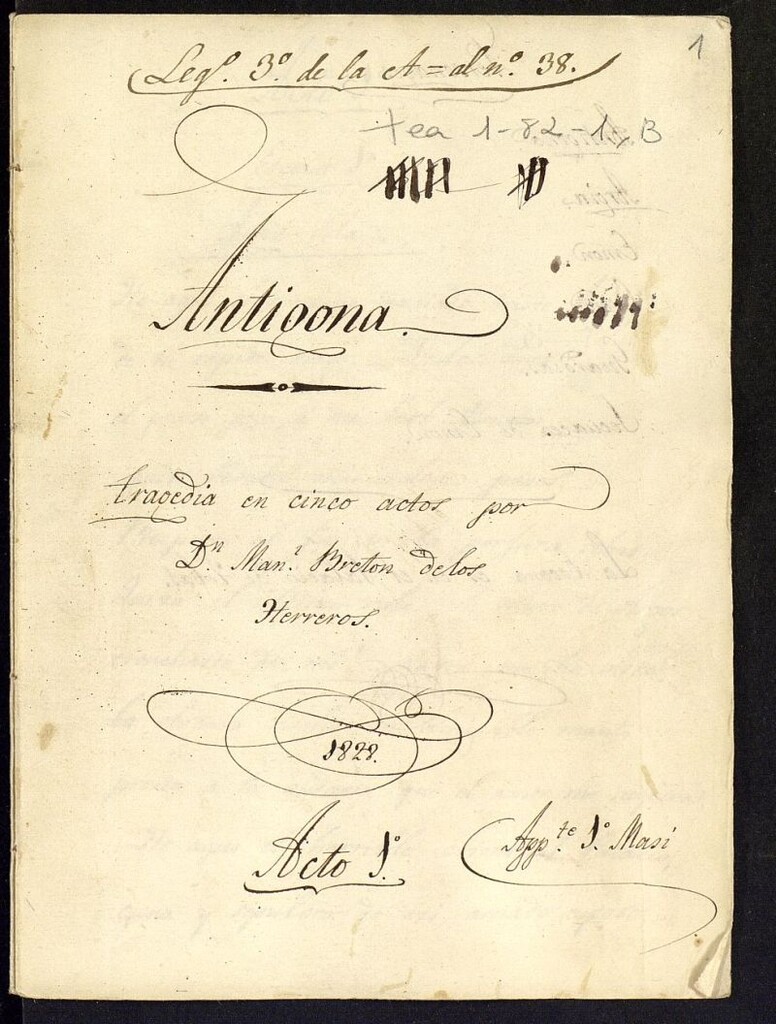 1
Legº. 3º. de la A = al nº. 38.
Tea 1-82-1, B
Antigona.
tragedia en cinco actos por
Dn. Manl. Breton delos
Herreros.
1828.
Acto 1º.
Appte. 1º. Masi